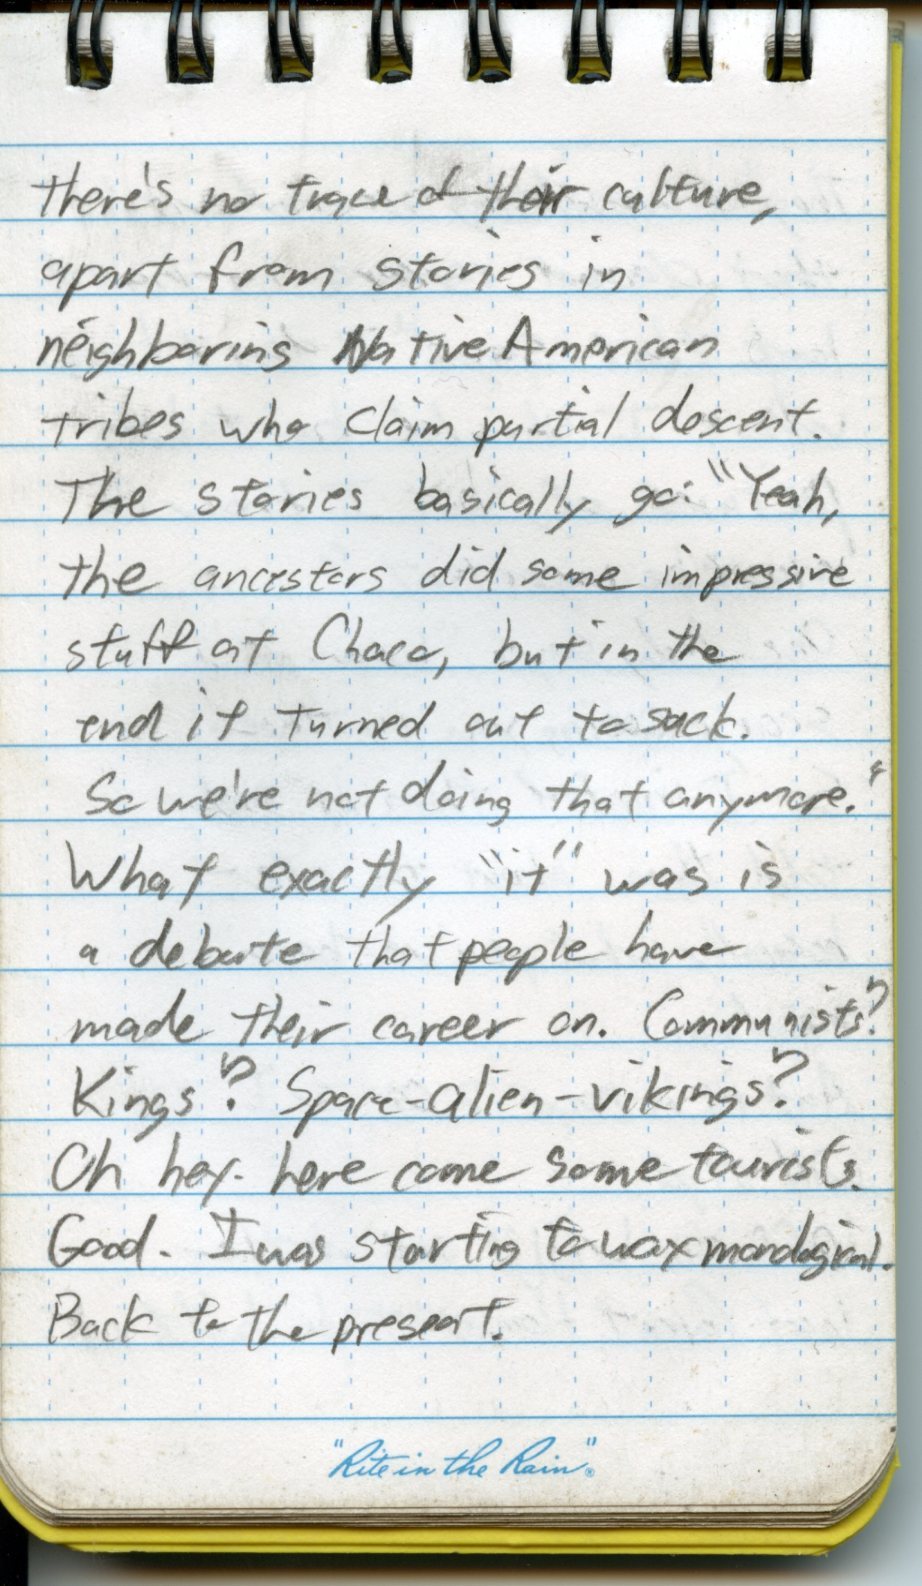 there's no trace of their culture,
apart from stories in
neighboring Native American
tribes who claim partial descent.
The stories basically go: "Yeah,
the ancestors did some impressive
stuff at Chaco, but in the
end it turned out to suck.
So we're not doing that anymore."
What exactly "it" was is
a debate that people have
made their career on. Communists?
Kings? Space-alien-vikings?
Oh hey. here come some tourists.
Good. I was starting to wax monological.
Back to the present.
"Rite in the Rain"®